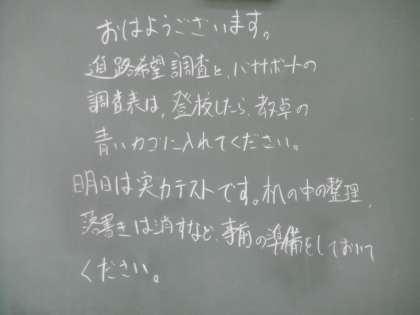 おはようございます。
進路希望調査と、パサポートの
調査表は、登校したら、教卓の
青いカゴに入れてください。
明日は実力テストです。机の中の整理、
落書きは消すなど、事前の準備をしておいて
ください。